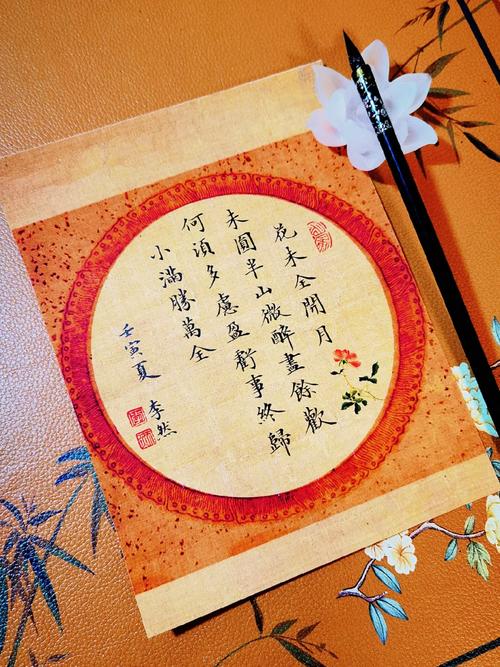 花未全開月
未圓半山微醉盡餘歡
何須多慮盈虧事終歸
小滿勝萬全
壬寅夏 李然